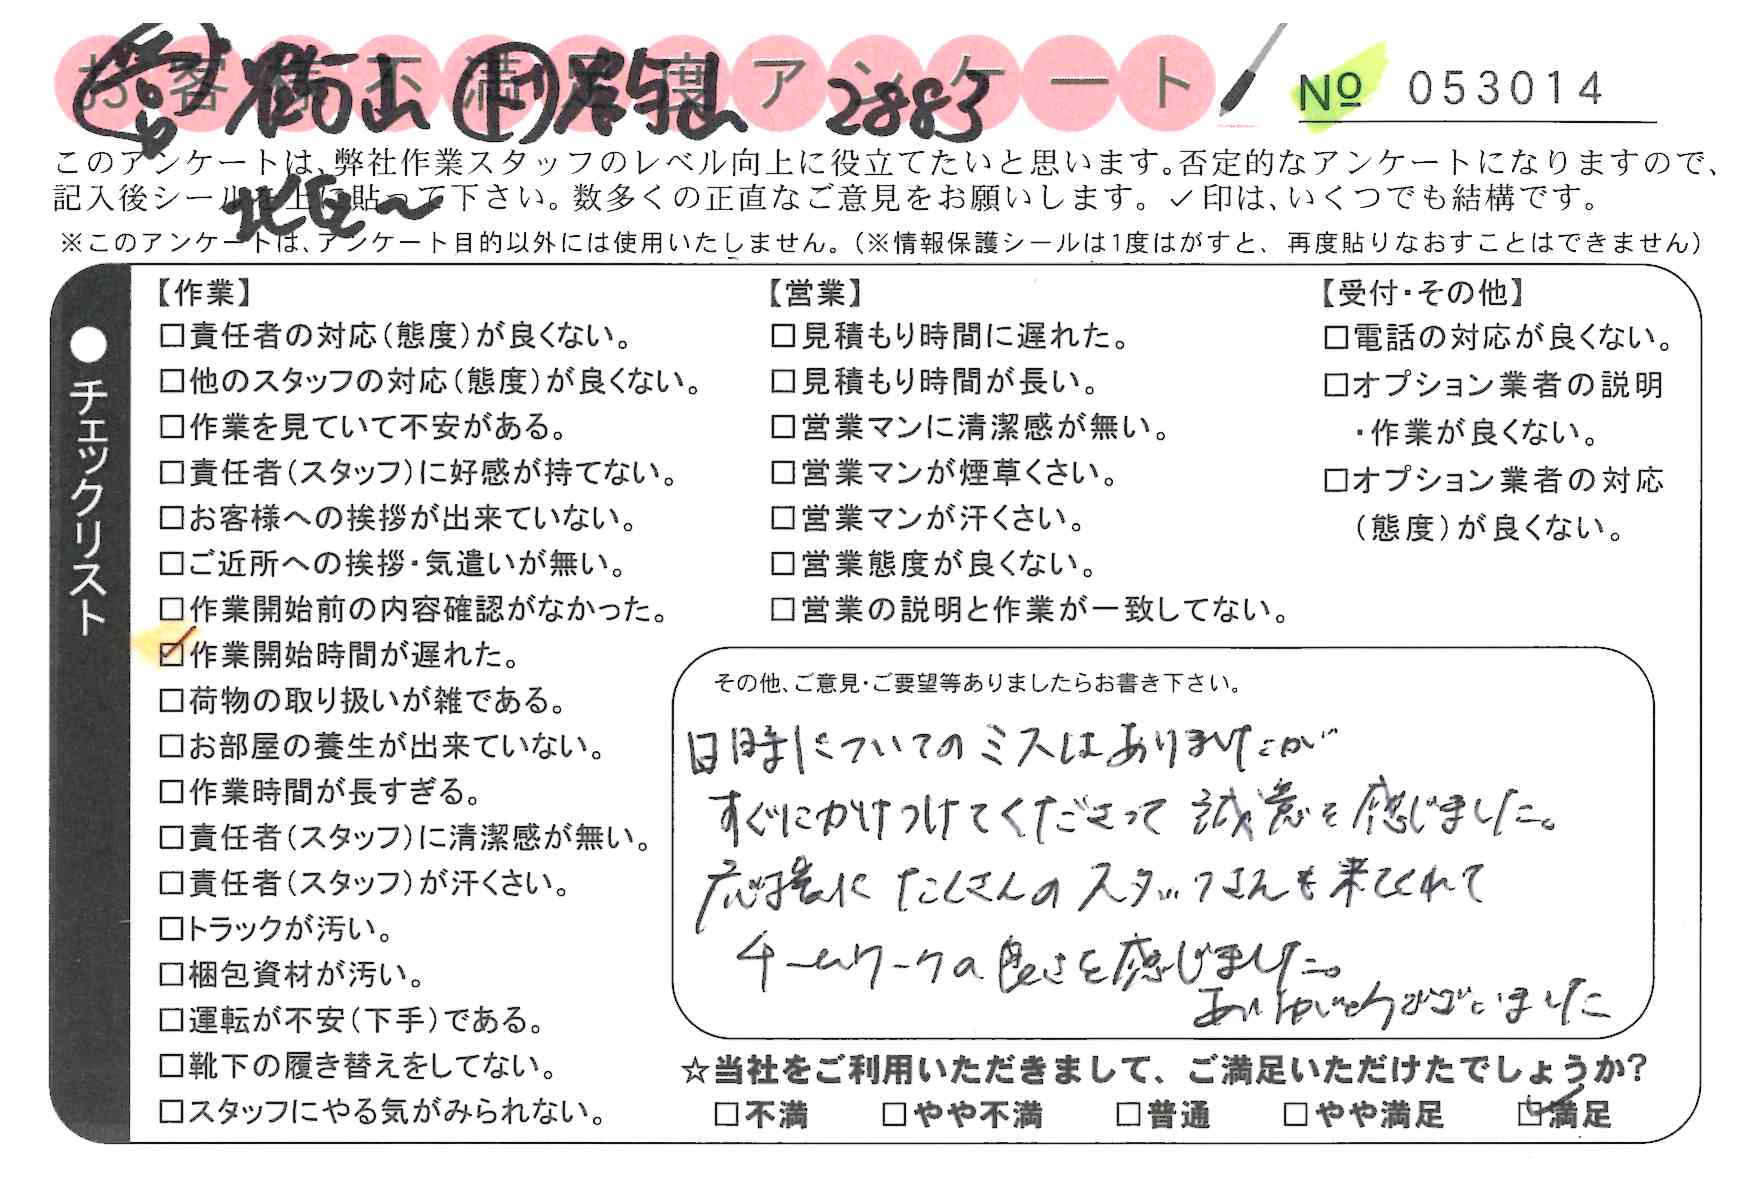 お客様不満足度アンケート
横山 2883
北区〜
№ 053014
このアンケートは、弊社作業スタッフのレベル向上に役立てたいと思います。否定的なアンケートになりますので、
記入後シールを上に貼って下さい。数多くの正直なご意見をお願いします。✓印は、いくつでも結構です。
※このアンケートは、アンケート目的以外には使用いたしません。(※情報保護シールは1度はがすと、再度貼りなおすことはできません)
●チェックリスト
【作業】
□責任者の対応(態度)が良くない。
□他のスタッフの対応(態度)が良くない。
□作業を見ていて不安がある。
□責任者(スタッフ)に好感が持てない。
□お客様への挨拶が出来ていない。
□ご近所への挨拶・気遣いが無い。
□作業開始前の内容確認がなかった。
☑作業開始時間が遅れた。
□荷物の取り扱いが雑である。
□お部屋の養生が出来ていない。
□作業時間が長すぎる。
□責任者(スタッフ)に清潔感が無い。
□責任者(スタッフ)が汗くさい。
□トラックが汚い。
□梱包資材が汚い。
□運転が不安(下手)である。
□靴下の履き替えをしてない。
□スタッフにやる気がみられない。
【営業】
□見積もり時間に遅れた。
□見積もり時間が長い。
□営業マンに清潔感が無い。
□営業マンが煙草くさい。
□営業マンが汗くさい。
□営業態度が良くない。
□営業の説明と作業が一致してない。
【受付・その他】
□電話の対応が良くない。
□オプション業者の説明
・作業が良くない。
□オプション業者の対応
(態度)が良くない。
その他、ご意見・ご要望等ありましたらお書き下さい。
日時についてのミスはありましたが
すぐにかけつけてくださって 誠意を感じました。
応援に たくさんの スタッフさんも来てくれて
チームワークの良さを感じました。
ありがとうございました
☆当社をご利用いただきまして、ご満足いただけたでしょうか?
□不満 □やや不満 □普通 □やや満足 ☑満足